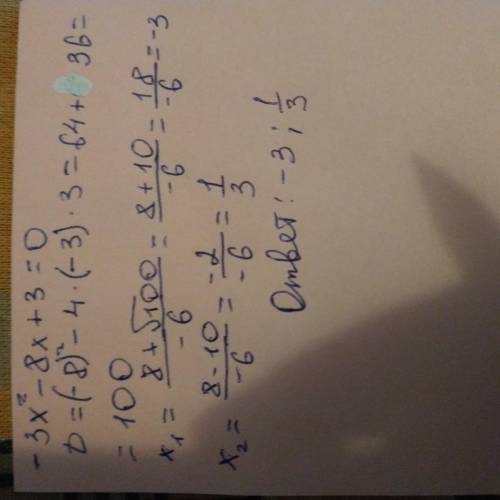 -3x²-8x+3=0
D=(-8)²-4·(-3)·3=64+36=
=100
x₁=(8+√100)/-6=(8+10)/-6=18/-6=-3
x₂=(8-10)/-6=-2/-6=1/3
Ответ: -3; 1/3